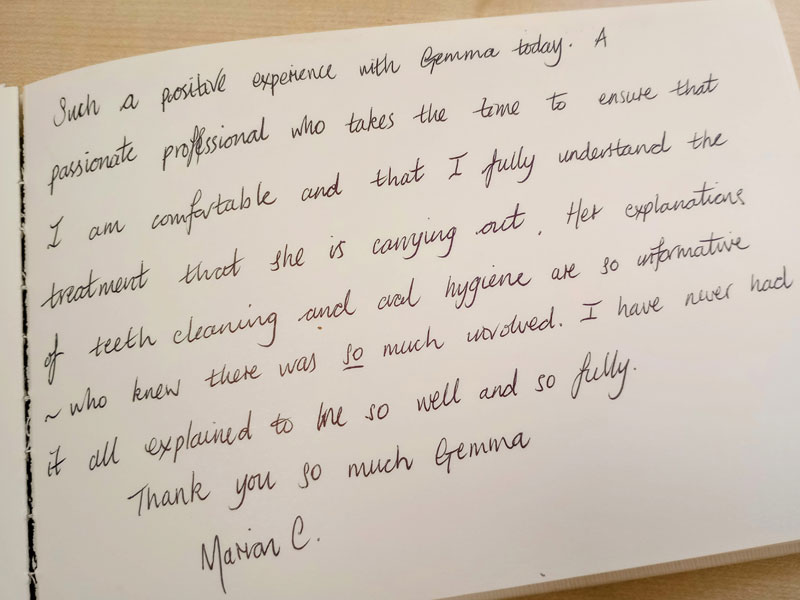 Such a positive experience with Gemma today. A
passionate professional who takes the time to ensure that
I am comfortable and that I fully understand the
treatment that she is carrying out. Her explanations
of teeth cleaning and oral hygiene are so informative
~ who knew there was so much involved. I have never had
it all explained to me so well and so fully.
Thank you so much Gemma
Marian C.